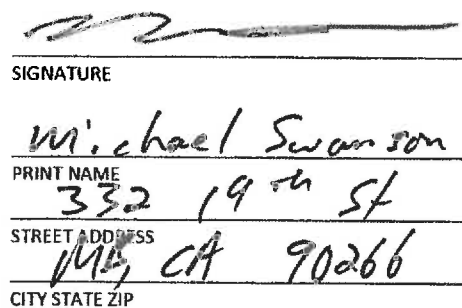 SIGNATURE
Michael Swanson
PRINT NAME
332 19th St
STREET ADDRESS
MB, CA 90266
CITY STATE ZIP